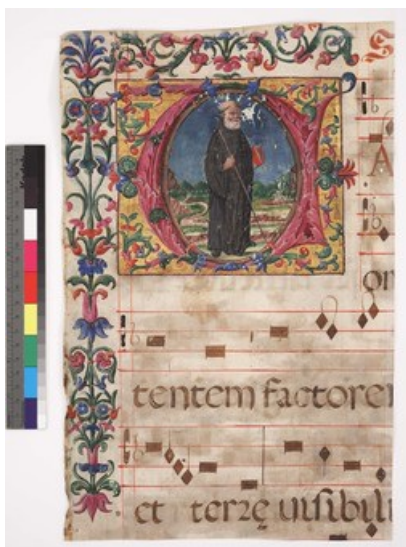 A
on
tentem factoren
et terrę uisibili